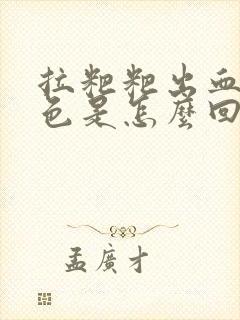 拉粑粑出血
色是怎麼回
孟廣才